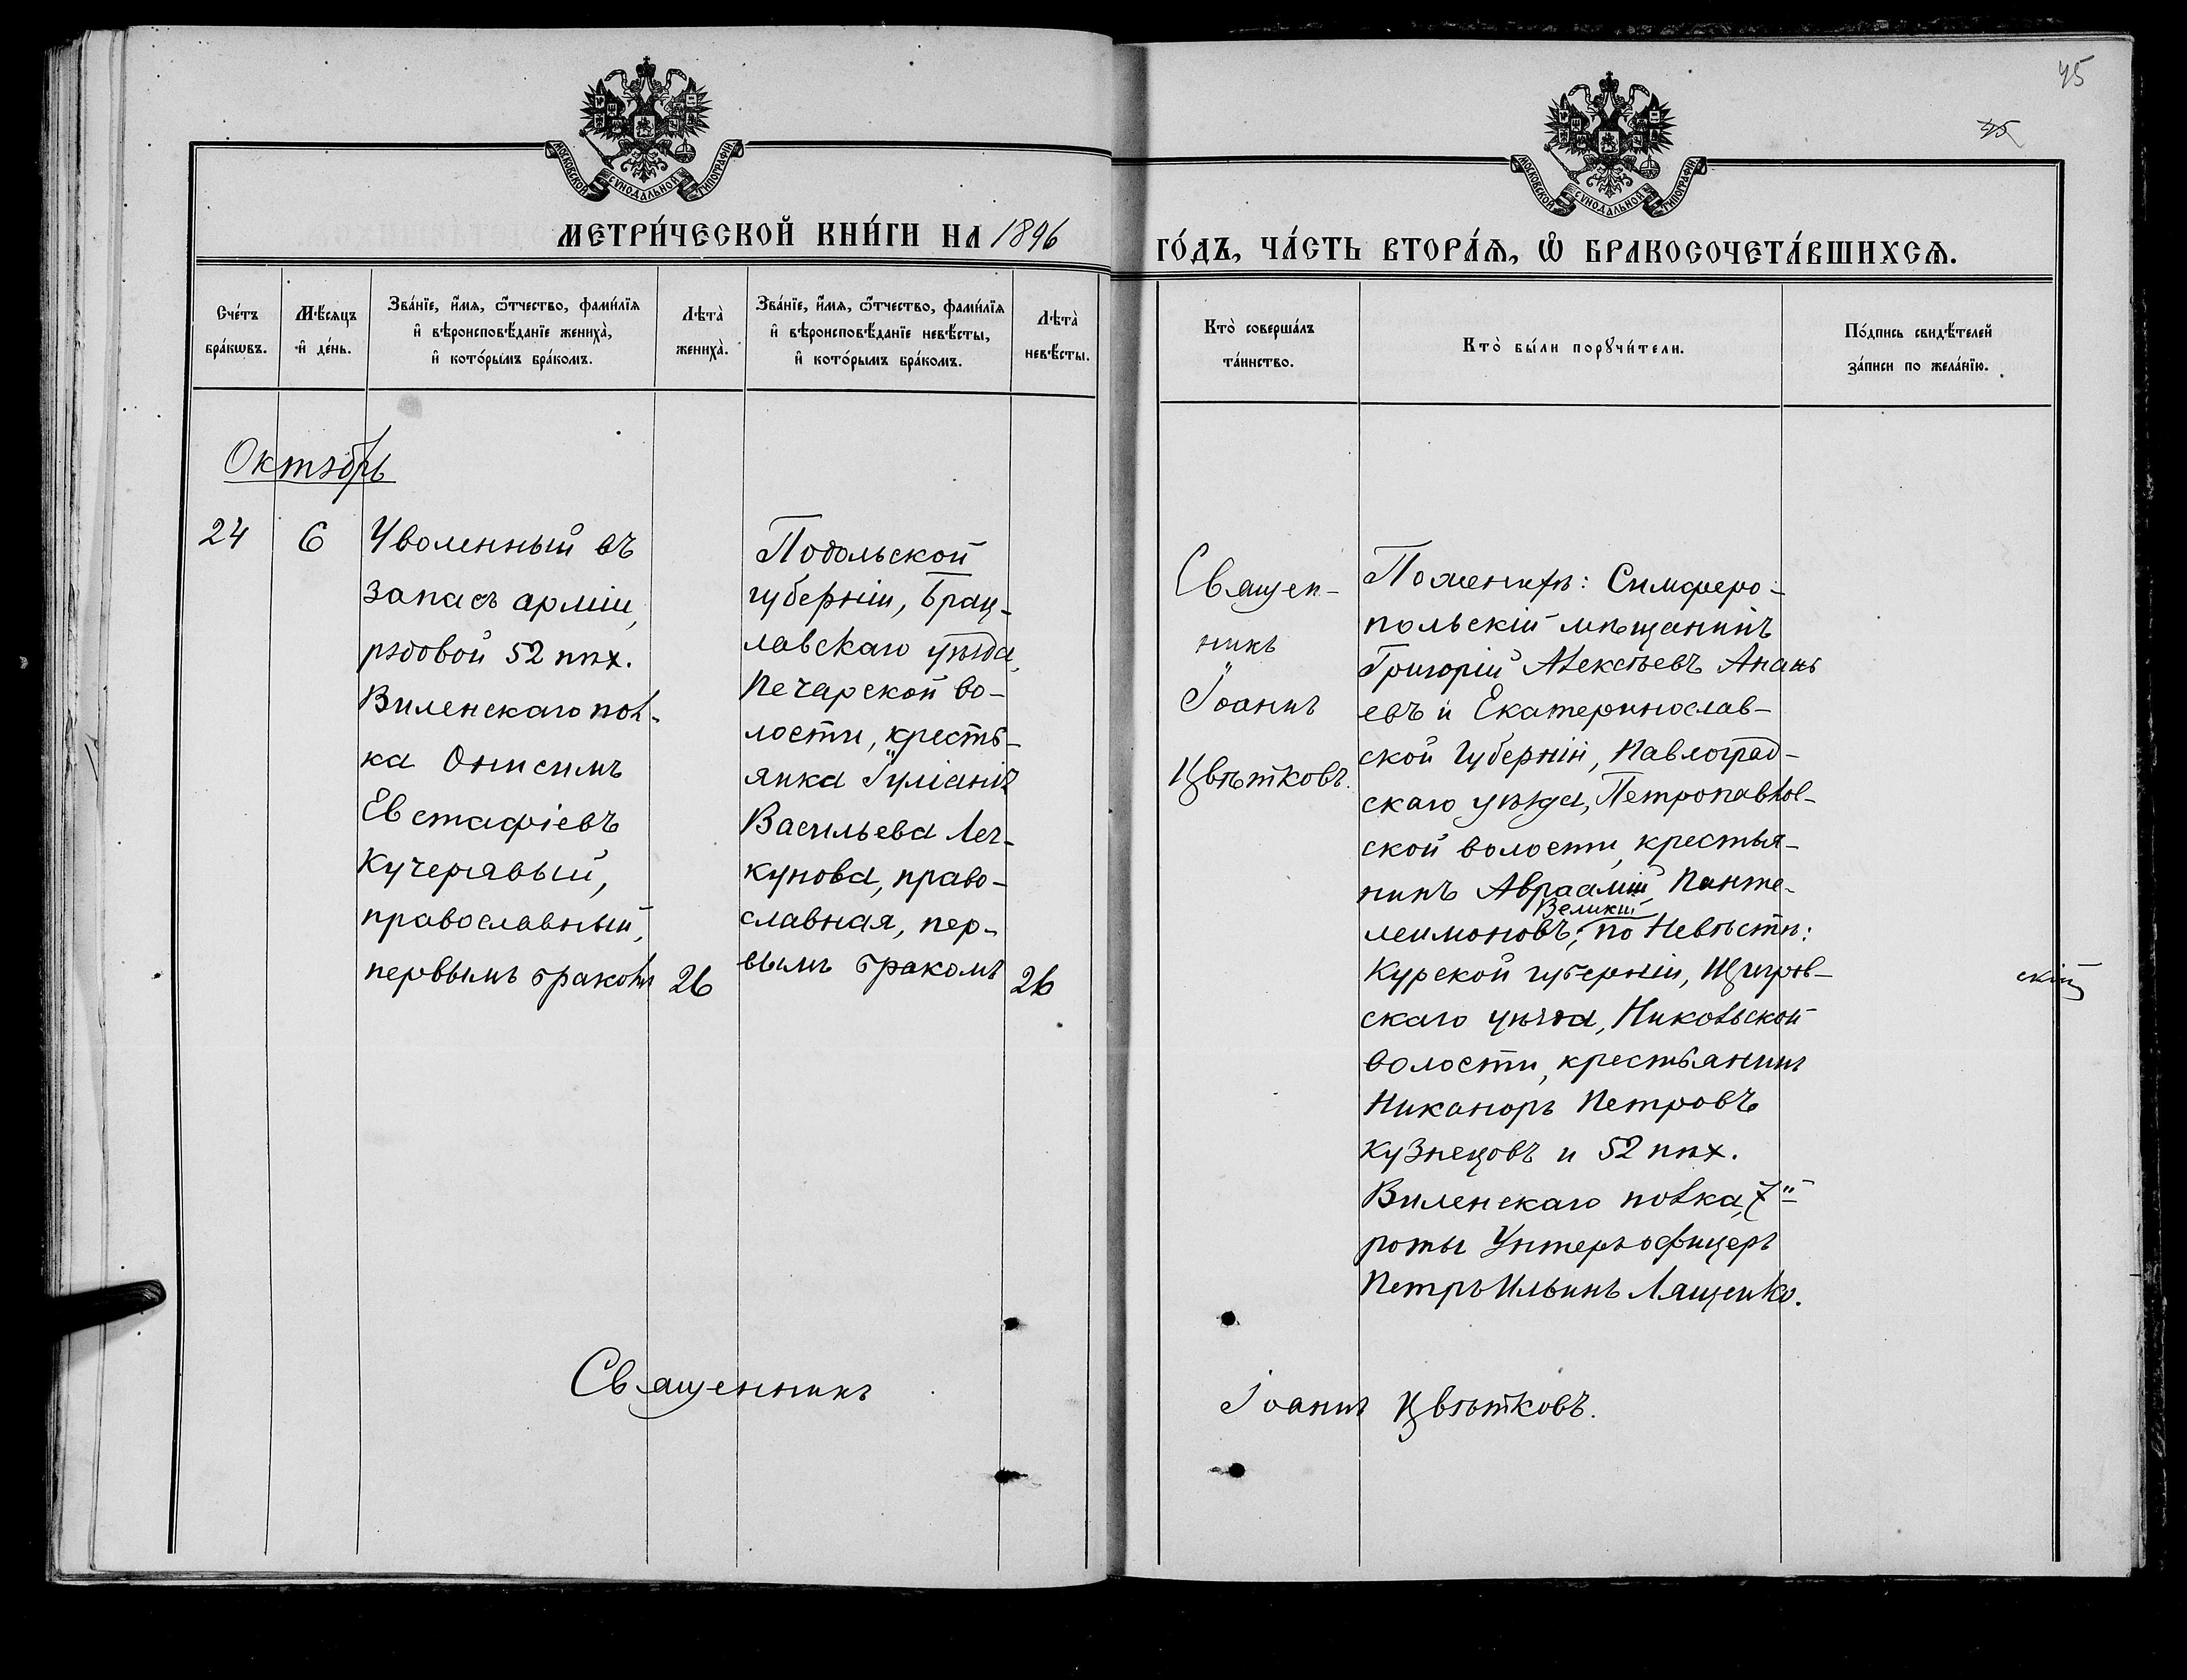 45
45
МОСКОВСКОЙ СУНОДАЛЬНОЙ ТИПОГРАФІИ
МОСКОВСКОЙ СУНОДАЛЬНОЙ ТИПОГРАФІИ
МЕТРИ́ЧЕСКОЙ КНИ́ГИ НА 1896
ГО́ДЪ, ЧА́СТЬ ВТОРА́Ѧ, Ѡ҆ БРАКОСОЧЕТА́ВШИХСѦ.
Сче́тъ
бра́кѡвъ.
Мѣ́сяцъ
и҆ де́нь.
Зва́нїе, и҆́мѧ, ѻ҆́тчество, фами́лїѧ
и҆ вѣроисповѣ́данїе жениха̀,
и҆ кото́рымъ бра́комъ.
Лѣта̀
жениха̀.
Зва́нїе, и҆́мѧ, ѻ҆́тчество, фами́лїѧ
и҆ вѣроисповѣ́данїе невѣ́сты,
и҆ кото́рымъ бра́комъ.
Лѣта̀
невѣ́сты.
Кто̀ соверша́лъ
та́инство.
Кто̀ бы́ли порꙋчи́тели.
По́дпись свидѣ́телей
за́писи по жела́нїю.
Октябрь
24
6
Уволенный въ
запасъ арміи,
рядовой 52 пѣх.
Виленскаго пол-
ка Онисимъ
Евстафіевъ
Кучерявый,
православный,
первымъ бракомъ
26
Подольской
губерніи, Брац-
лавскаго уѣзда,
Печарской во-
лости, кресть-
янка Іуліанія
Васильева Леч-
кунова, право-
славная, пер-
вымъ бракомъ
26
Священ-
никъ
Іоаннъ
Цвѣтковъ.
По женихѣ: Симферо-
польскій мѣщанинъ
Григорій Алексѣевъ Анань
евъ и Екатеринослав-
ской губерніи, Павлоград-
скаго уѣзда, Петропавлов-
ской волости, крестья-
нинъ Авраамій Панте-
Великій
леимоновъ; по невѣстѣ:
Курской губерніи, Щигров-
скій
скаго уѣзда, Никольской
волости, крестьянинъ
Никаноръ Петровъ
Кузнецовъ и 52 пѣх.
Виленскаго полка, 7й
роты Унтеръ офицеръ
Петръ Ильинъ Лященко.
Священникъ
Іоаннъ Цвѣтковъ.